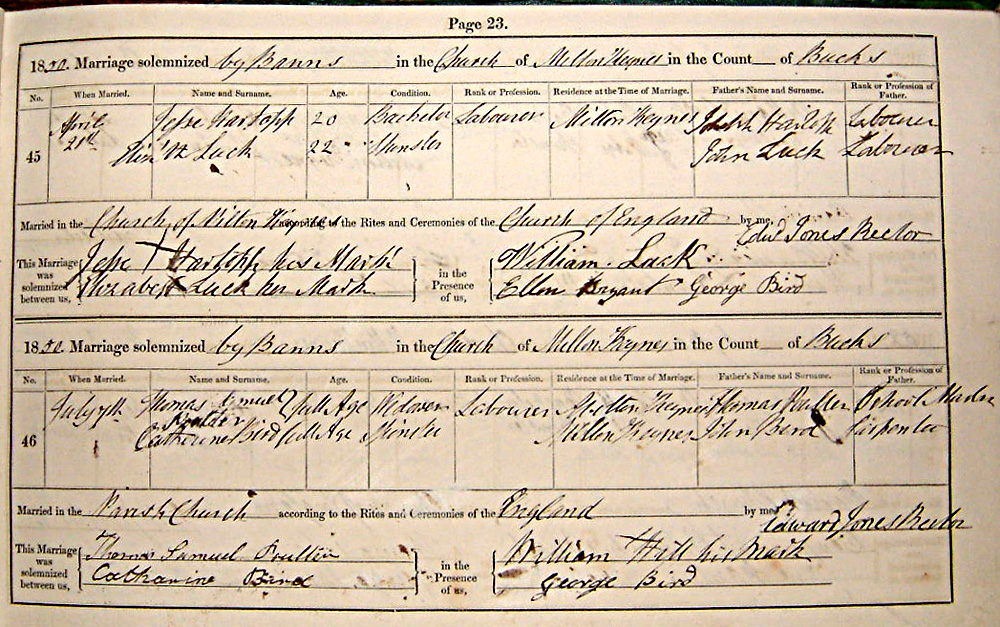 Page 23.
1850. Marriage solemnized by Banns in the Church of Milton Keynes in the Count of Bucks
No. When Married. Name and Surname. Age. Condition. Rank or Profession. Residence at the Time of Marriage. Father's Name and Surname. Rank or Profession of Father.
45 April 21st Jesse Hartopp 20 Bachelor Labourer Milton Keynes Hartopp Labourer
Luck 22 Spinster John Luck Labourer
Married in the Church of Milton Keynes according to the Rites and Ceremonies of the Church of England by me, Edwd Jones Rector
This Marriage was solemnized between us, Jesse Hartopp his Mark in the Presence of us, William Luck
Elizabeth Luck her Mark Ellen Bryant George Bird
1850. Marriage solemnized by Banns in the Church of Milton Keynes in the Count of Bucks
No. When Married. Name and Surname. Age. Condition. Rank or Profession. Residence at the Time of Marriage. Father's Name and Surname. Rank or Profession of Father.
46 July 7th Thomas Samuel full Age Widower Labourer Milton Keynes Thomas Poulter School Master
Poulter
Catharine Bird full Age Spinster Milton Keynes John Bird Carpenter
Married in the Parish Church according to the Rites and Ceremonies of the England by me, Edward Jones Rector
This Marriage was solemnized between us, Thomas Samuel Poulter in the Presence of us, William Hill his Mark
Catharine Bird George Bird